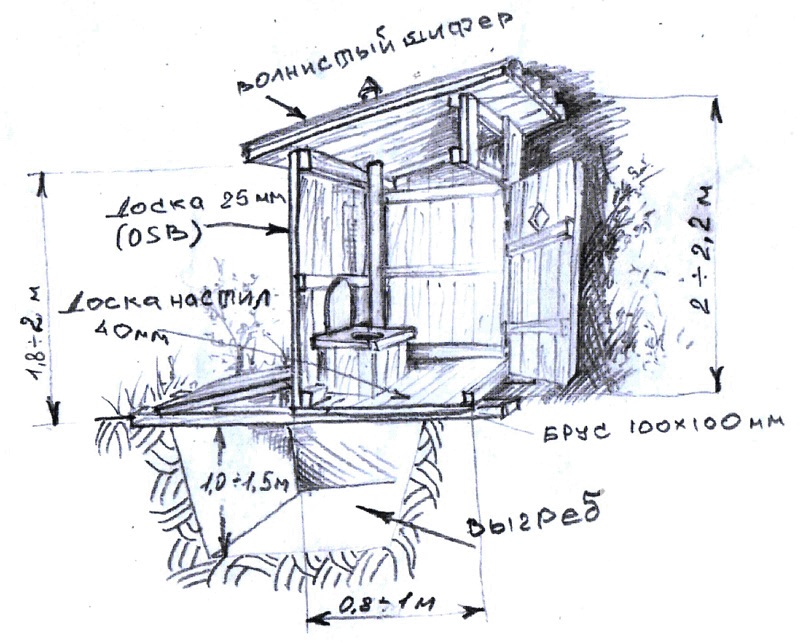 волнистый шифер
Доска 25мм
(OSB)
Доска настил
40мм
1,8÷2 м
2÷2,2 м
БРУС 100х100 мм
1,0÷1,5м
выгреб
0,8÷1м